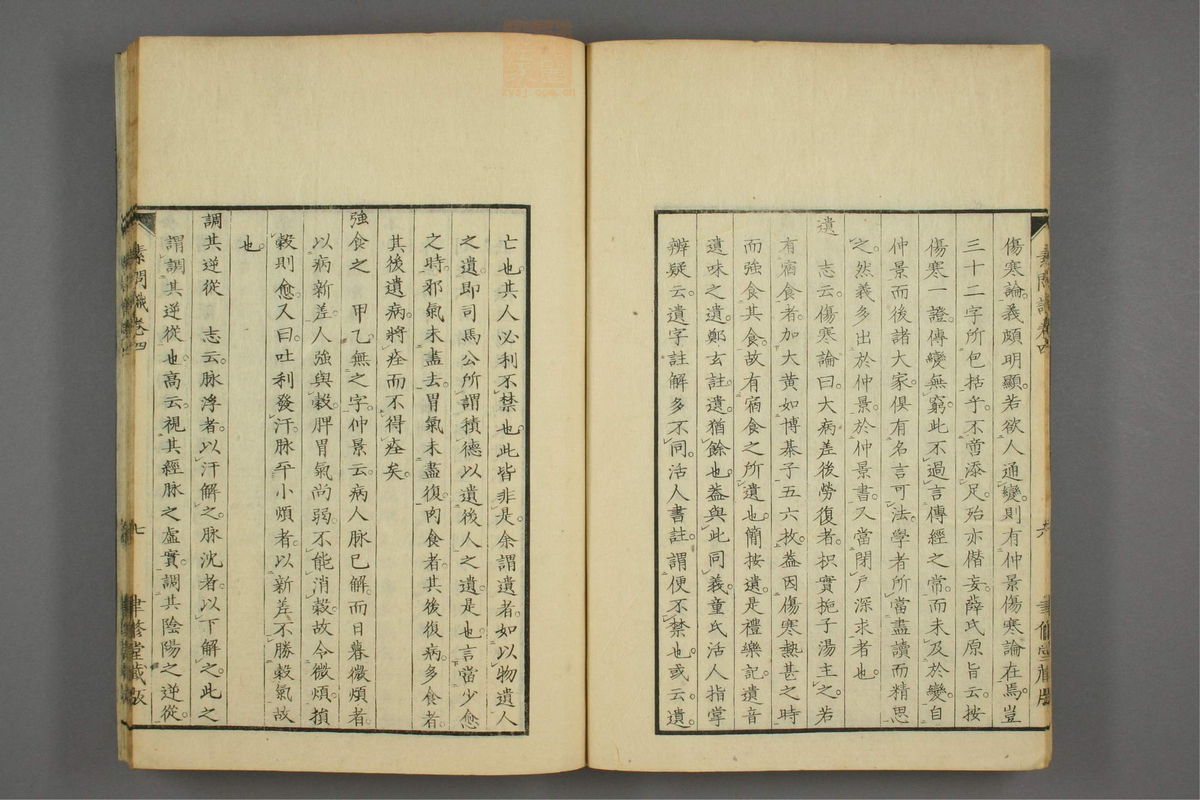 傷寒論義頗明顯。若欲人通變。則有仲景傷寒論在焉。豈
三十二字所包括乎。不啻添足。殆亦僭妄。薛氏原旨云。按
傷寒一證。傳變無窮。此不過言傳經之常。而未及於變。自
仲景而後諸大家。俱有名言可法。學者所當盡讀而精思
之。然義多出於仲景。於仲景書。又當閉戶深求者也。
遺 志云。傷寒論曰。大病差後勞復者。枳實梔子湯主之。若
有宿食者。加大黄如博棊子五六枚。蓋因傷寒熱甚之時
而強食其食。故有宿食之所遺也。簡按遺。是禮樂記。遺音
遺味之遺。鄭玄註。遺。猶餘也。蓋與此同義。童氏活人指掌
辨疑云。遺字註解多不同。活人書註。謂便不禁也。或云。遺
素問識卷四
亡也。其人必利不禁也。此皆非是。余謂遺者。如以物遺人
之遺。即司馬公所謂積德以遺後人之遺是也。言當少愈
之時。邪氣未盡去。胃氣未盡復。肉食者。其後復病。多食者。
其後遺病。將痊而不得痊矣。
強食之 甲乙無之字。仲景云。病人脉已解。而日暮微煩者。
以病新差。人強與穀。脾胃氣尚弱。不能消穀。故令微煩。損
穀則愈。又曰。吐利發汗。脉平小煩者。以新差。不勝穀氣故
也。
調其逆從 志云。脉浮者。以汗解之。脉沈者。以下解之。此之
謂調其逆從也。高云。視其經脉之虛實。調其陰陽之逆從。
素問識卷四
七
聿修堂藏版